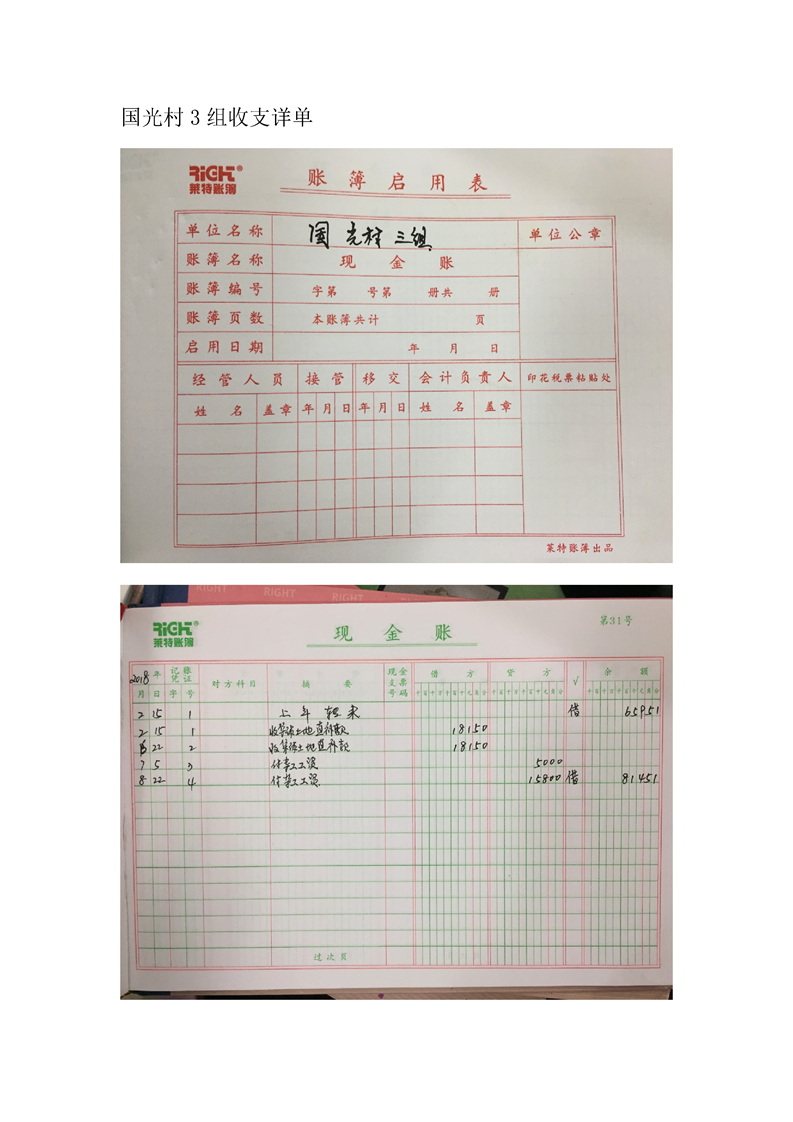 国光村 3 组收支详单
RiGHt®
莱特账簿
账簿启用表
单位名称 国光村三组 单位公章
账簿名称 现金账
账簿编号 字第 号第 册共 册
账簿页数 本账簿共计 页
启用日期 年 月 日
经管人员 接管 移交 会计负责人 印花税票粘贴处
姓名 盖章 年 月 日 年 月 日 姓名 盖章
莱特账簿出品
RIGHT RIGHT RIGHT
第31号
RiGHt®
莱特账簿
现金账
2018年 记账凭证 对方科目 摘要 现金支票号码 借方 贷方 √ 余额
月 日 字 号 千百十万千百十元角分 千百十万千百十元角分 千百十万千百十元角分
2 15 1 上年转来 借 65951
2 15 1 土地直补款 18150
22 2 土地直补款 18150
7 5 3 工工资 5000
8 22 4 工工资 15800 借 81451
过次页